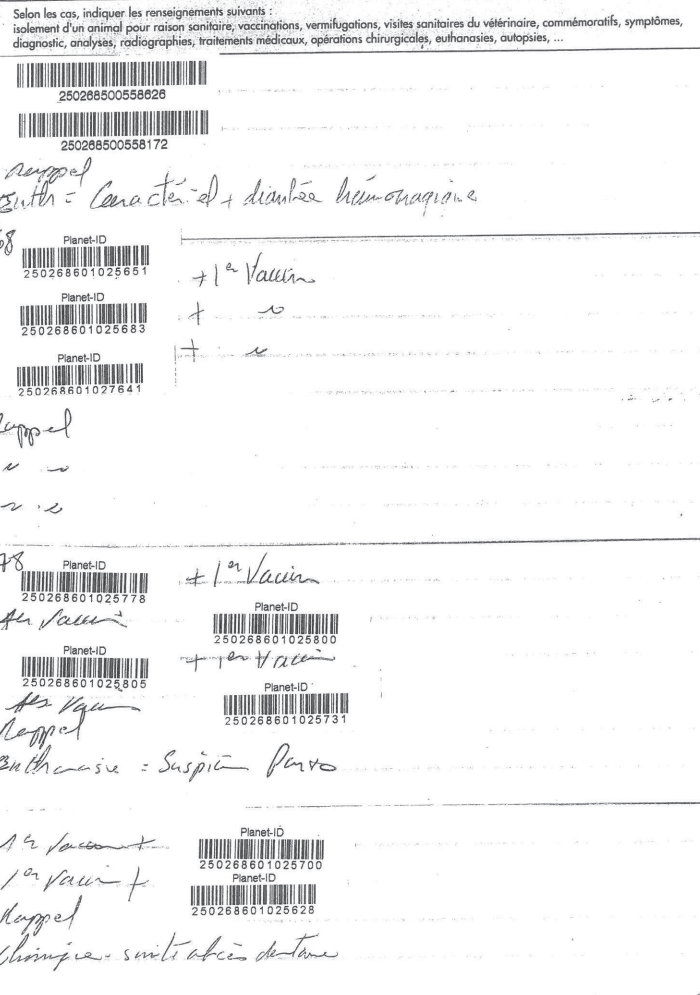 Selon les cas, indiquer les renseignements suivants :
isolement d'un animal pour raison sanitaire, vaccinations, vermifugations, visites sanitaires du vétérinaire, commémoratifs, symptômes,
diagnostic, analyses, radiographies, traitements médicaux, opérations chirurgicales, euthanasies, autopsies, ...
250268500558626
250268500558172
Rappel
Euth = Caractériel + diarrhée hémorragique
68 Planet-ID
250268601025651
+ 1er Vaccin
Planet-ID
250268601025683
+
Planet-ID
250268601027641
+
Rappel
78 Planet-ID
250268601025778
+ 1er Vaccin
1er Vaccin
Planet-ID
250268601025800
Planet-ID
250268601025805
+ 1er Vaccin
Planet-ID
250268601025731
1er Vaccin
Rappel
Euthanasie = Suspicion Parvo
1er Vaccin +
Planet-ID
250268601025700
1er Vaccin +
Planet-ID
250268601025628
Rappel
suite abcès dentaire